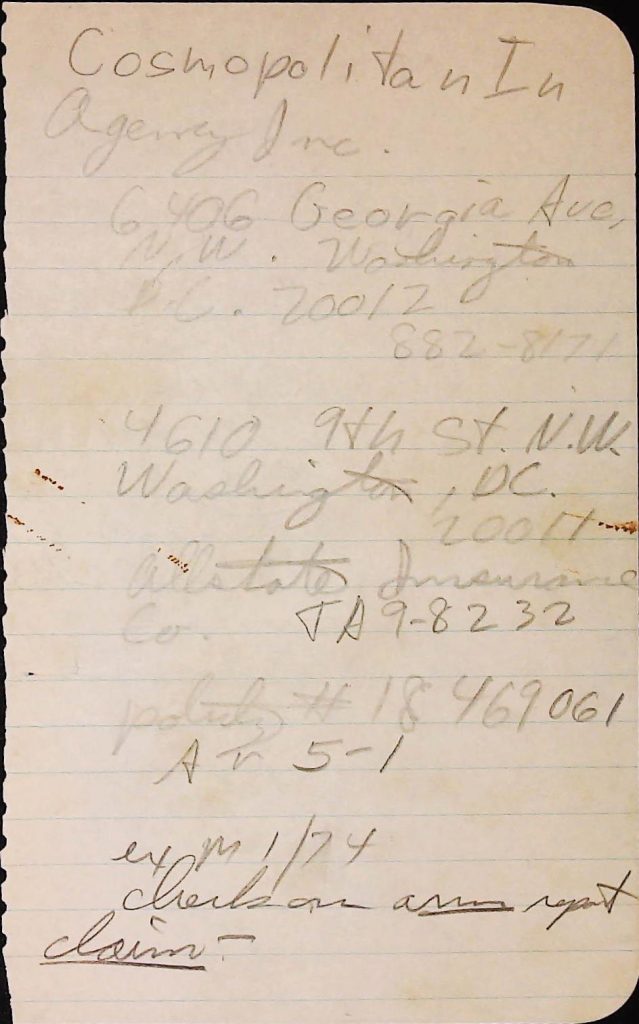 Cosmopolitan In
Agency Inc.
6406 Georgia Ave,
N.W. Washington
D.C. 20012
882-8171
4610 9th St. N.W.
Washington, DC.
20011
Allstate Insurance
Co. TA9-8232
policy # 18 469061
5-1
exp 1/74
check on arm report
claim-